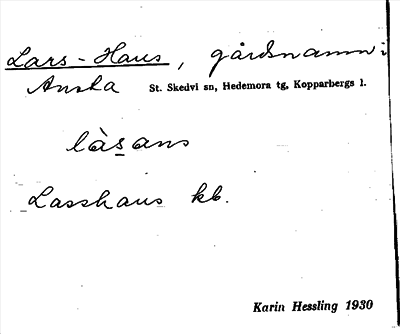 Lars-Hans, gårdsnamn i
Anska St. Skedvi sn, Hedemora tg, Kopparbergs l.
làsans
Lasshans kb.
Karin Hessling 1930